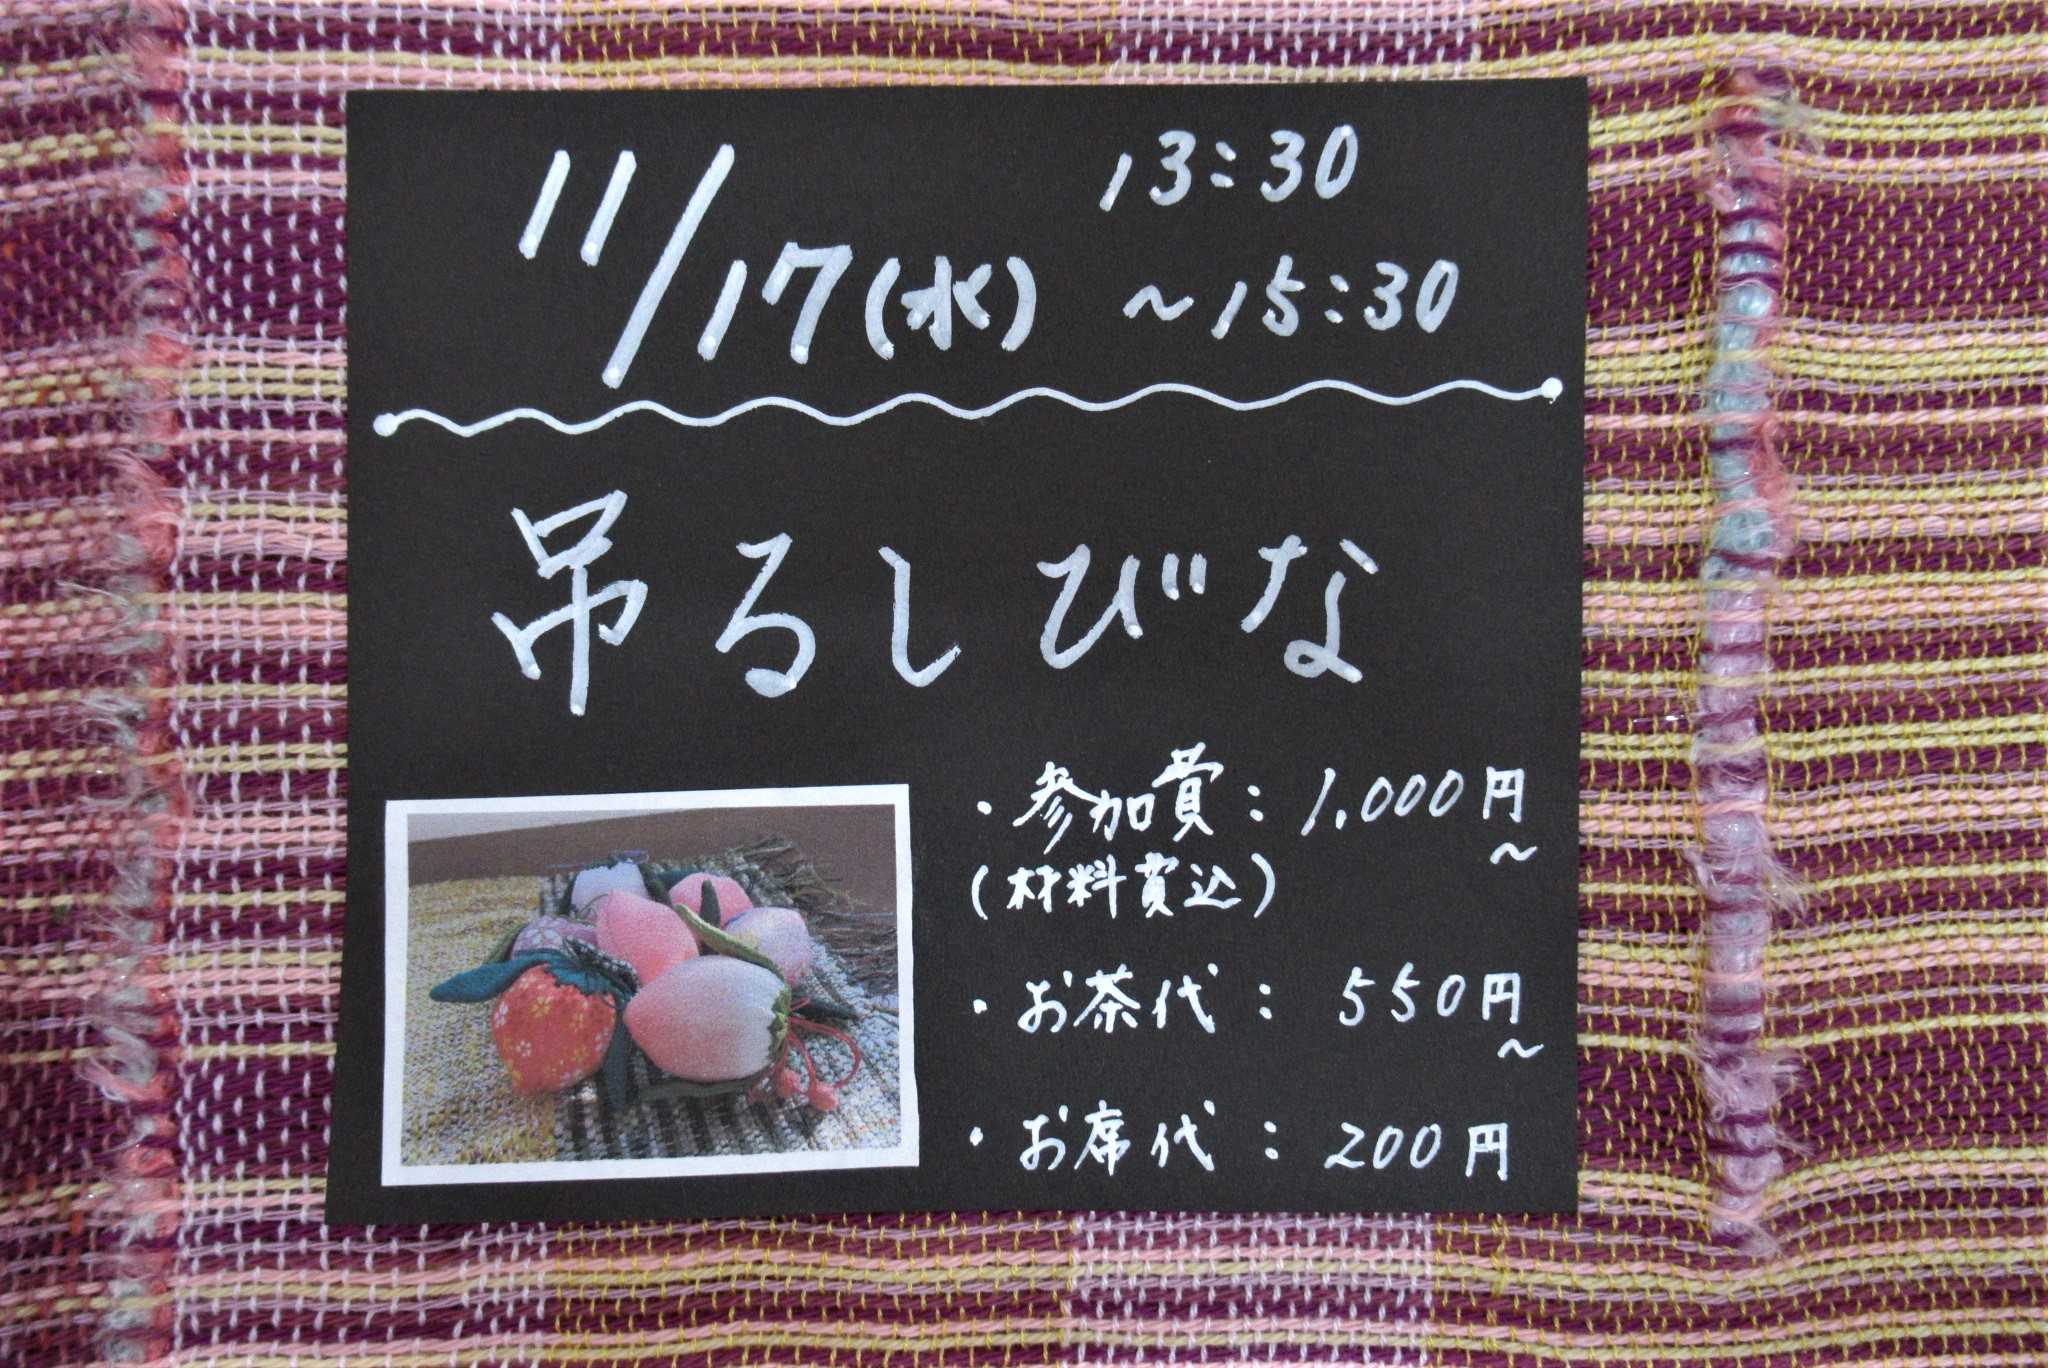 11/17(水) 13:30
～15:30
吊るしびな
・参加費：1.000円～
(材料費込)
・お茶代：550円～
・お席代：200円